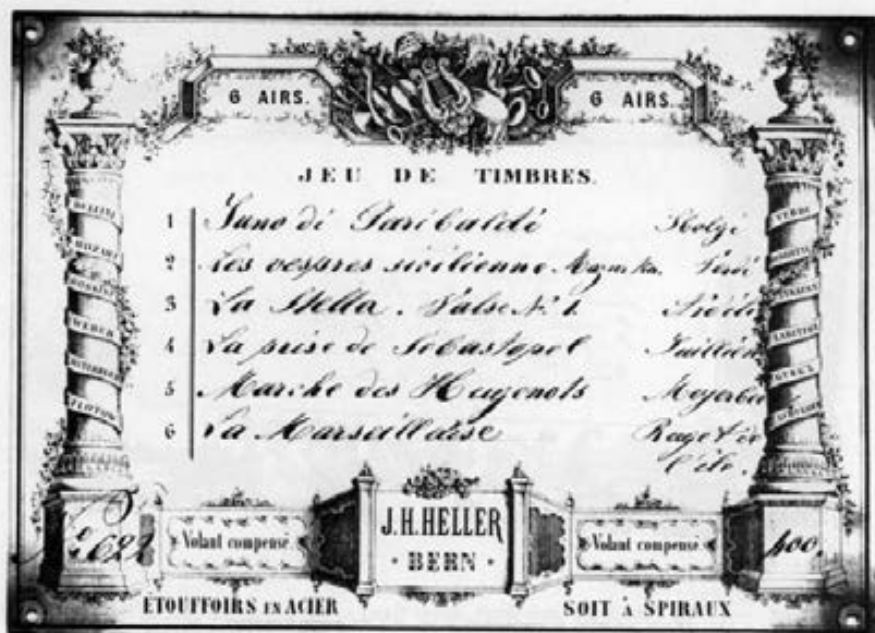 6 AIRS. 6 AIRS.
JEU DE TIMBRES.
1 Inno di Garibaldi
2 Les vespres sicilienne Mazurka. Verdi
3 La Stella. Valse N.º 1.
4 La prise de Sébastopol Juillien
5 Marche des Hugenots Meyerbee
6 La Marseillaise Roget de
l'isle.
BELLINI
MOZART
ROSSINI
WEBER
MEYERBEER
FLOTOW
VERDI
LABITZKY
J. H. HELLER
BERN
Volant compensé Volant compensé
400.
ETOUFFOIRS EN ACIER SOIT À SPIRAUX